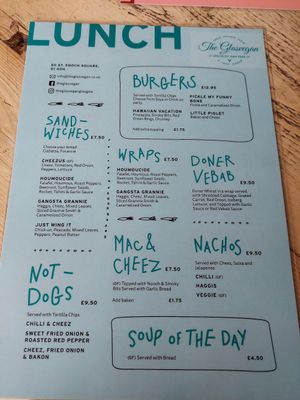 LUNCH
50 ST. ENOCH SQUARE,
G1 4DH
The Glasvegan
BURGERS
£12.95
Served with Tortilla Chips
HAWAIIAN VACATION
Pineapple, Smoky BBQ, Red
Onion Rings, Chutney
Add extra topping £1.75
PICKLE MY FUNNY
BONE
Pickle and Caramelised Onion
LITTLE PIGLET
Bakon and Cheez
SAND-
WICHES £7.50
Choose your bread
Ciabatta, Focaccia
CHEEZUS (GF)
Cheez, Tomatoes, Red Onion,
Peppers, Lettuce
HOUMOUCIDE
Falafel, Houmous, Roast Peppers,
Beetroot, Sunflower Seeds,
Rocket, Tahini & Garlic Sauce
GANGSTA GRANNIE
Haggis, Cheez, Mixed Leaves,
Sliced Granny Smith &
Caramelised Onion
JUST WING IT
Chick-un, Avocado, Mixed Leaves,
Peppers, Peanut Butter
WRAPS £7.50
HOUMOUCIDE
Falafel, Houmous, Roast Peppers,
Beetroot, Sunflower Seeds,
Rocket, Tahini & Garlic Sauce
GANGSTA GRANNIE
Haggis, Cheez, Mixed Leaves,
Sliced Granny Smith &
Caramelised Onion
DONER
VEBAB £9.50
Doner Wheat in a wrap served
with Shredded Cabbage, Grated
Carrot, Red Onion, Iceberg
Lettuce, and Topped with Garlic
Sauce or Red Vebab Sauce
NOT-
DOGS £9.50
Served with Tortilla Chips
CHILLI & CHEEZ
SWEET FRIED ONION &
ROASTED RED PEPPER
CHEEZ, FRIED ONION
& BAKON
MAC &
CHEEZ £7.50
(GF) Topped with Nooch & Smoky
Bits Served with Garlic Bread
Add baken £1.75
NACHOS
£9.50
(GF) Served with Cheez, Salsa and
Jalapenos
CHILLI (GF)
HAGGIS
VEGGIE (GF)
SOUP OF THE DAY
(GF) Served with Bread £4.50